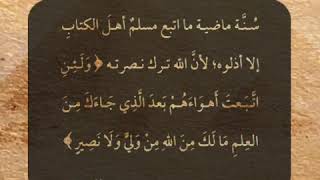 سُنَّة ماضية ما اتبع مسلمٌ أهلَ الكتابِ
إلا أذلوه؛ لأنَّ الله ترك نصرته ﴿ وَلَئِنِ
اتَّبَعتَ أَهوَاءَهُمْ بَعدَ الَّذِي جَاءَكَ مِنَ
العِلمِ مَا لَكَ مِنَ اللهِ مِنْ وَلِيٍّ وَلَا نَصِيرٍ ﴾